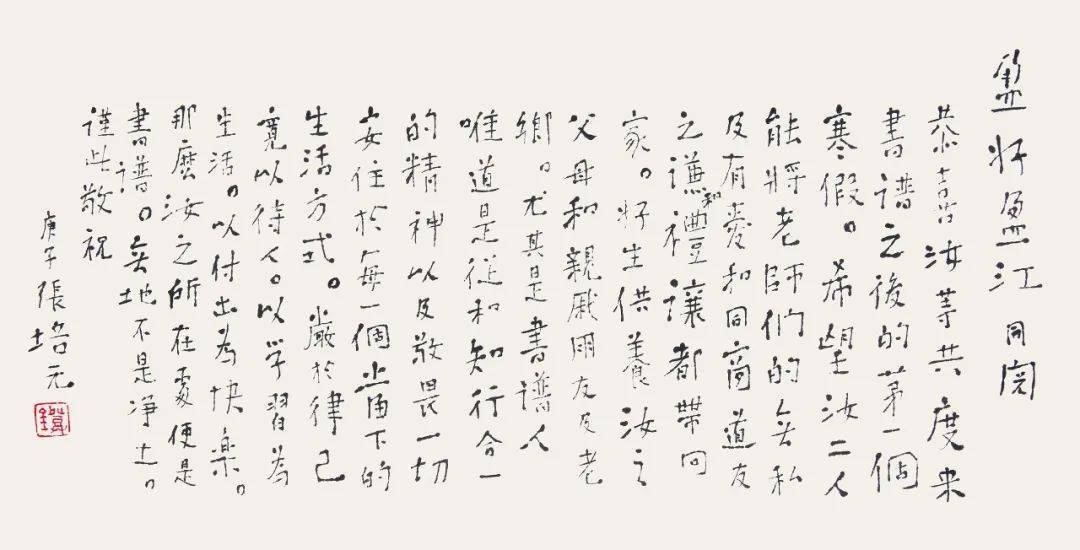 盈好盈江 同閱
恭喜汝等共度來
書譜之後的第一個
寒假。希望汝二人
能將老師們的無私
及有愛和同窗道友
之謙和禮讓都帶回
家。好生供養汝之
父母和親戚朋友及老
鄉。尤其是書譜人
唯道是從和知行合一
的精神以及敬畏一切
安住於每一個當下的
生活方式。嚴於律己
寬以待人。以学習為
生活。以付出為快樂。
那麼汝之所在處便是
書譜。無地不是淨土。
謹此敬祝
庚子張培元